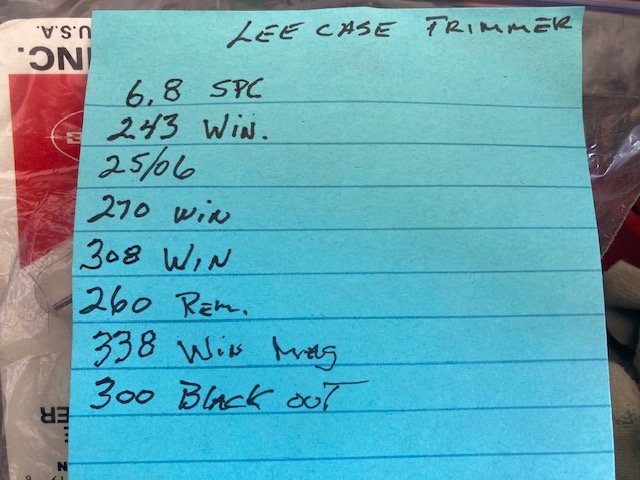 LEE CASE TRIMMER
6.8 SPC
243 WIN.
25/06
270 WIN
308 WIN
260 REM.
338 WIN MAG
300 BLACK OUT
INC.
U.S.A.